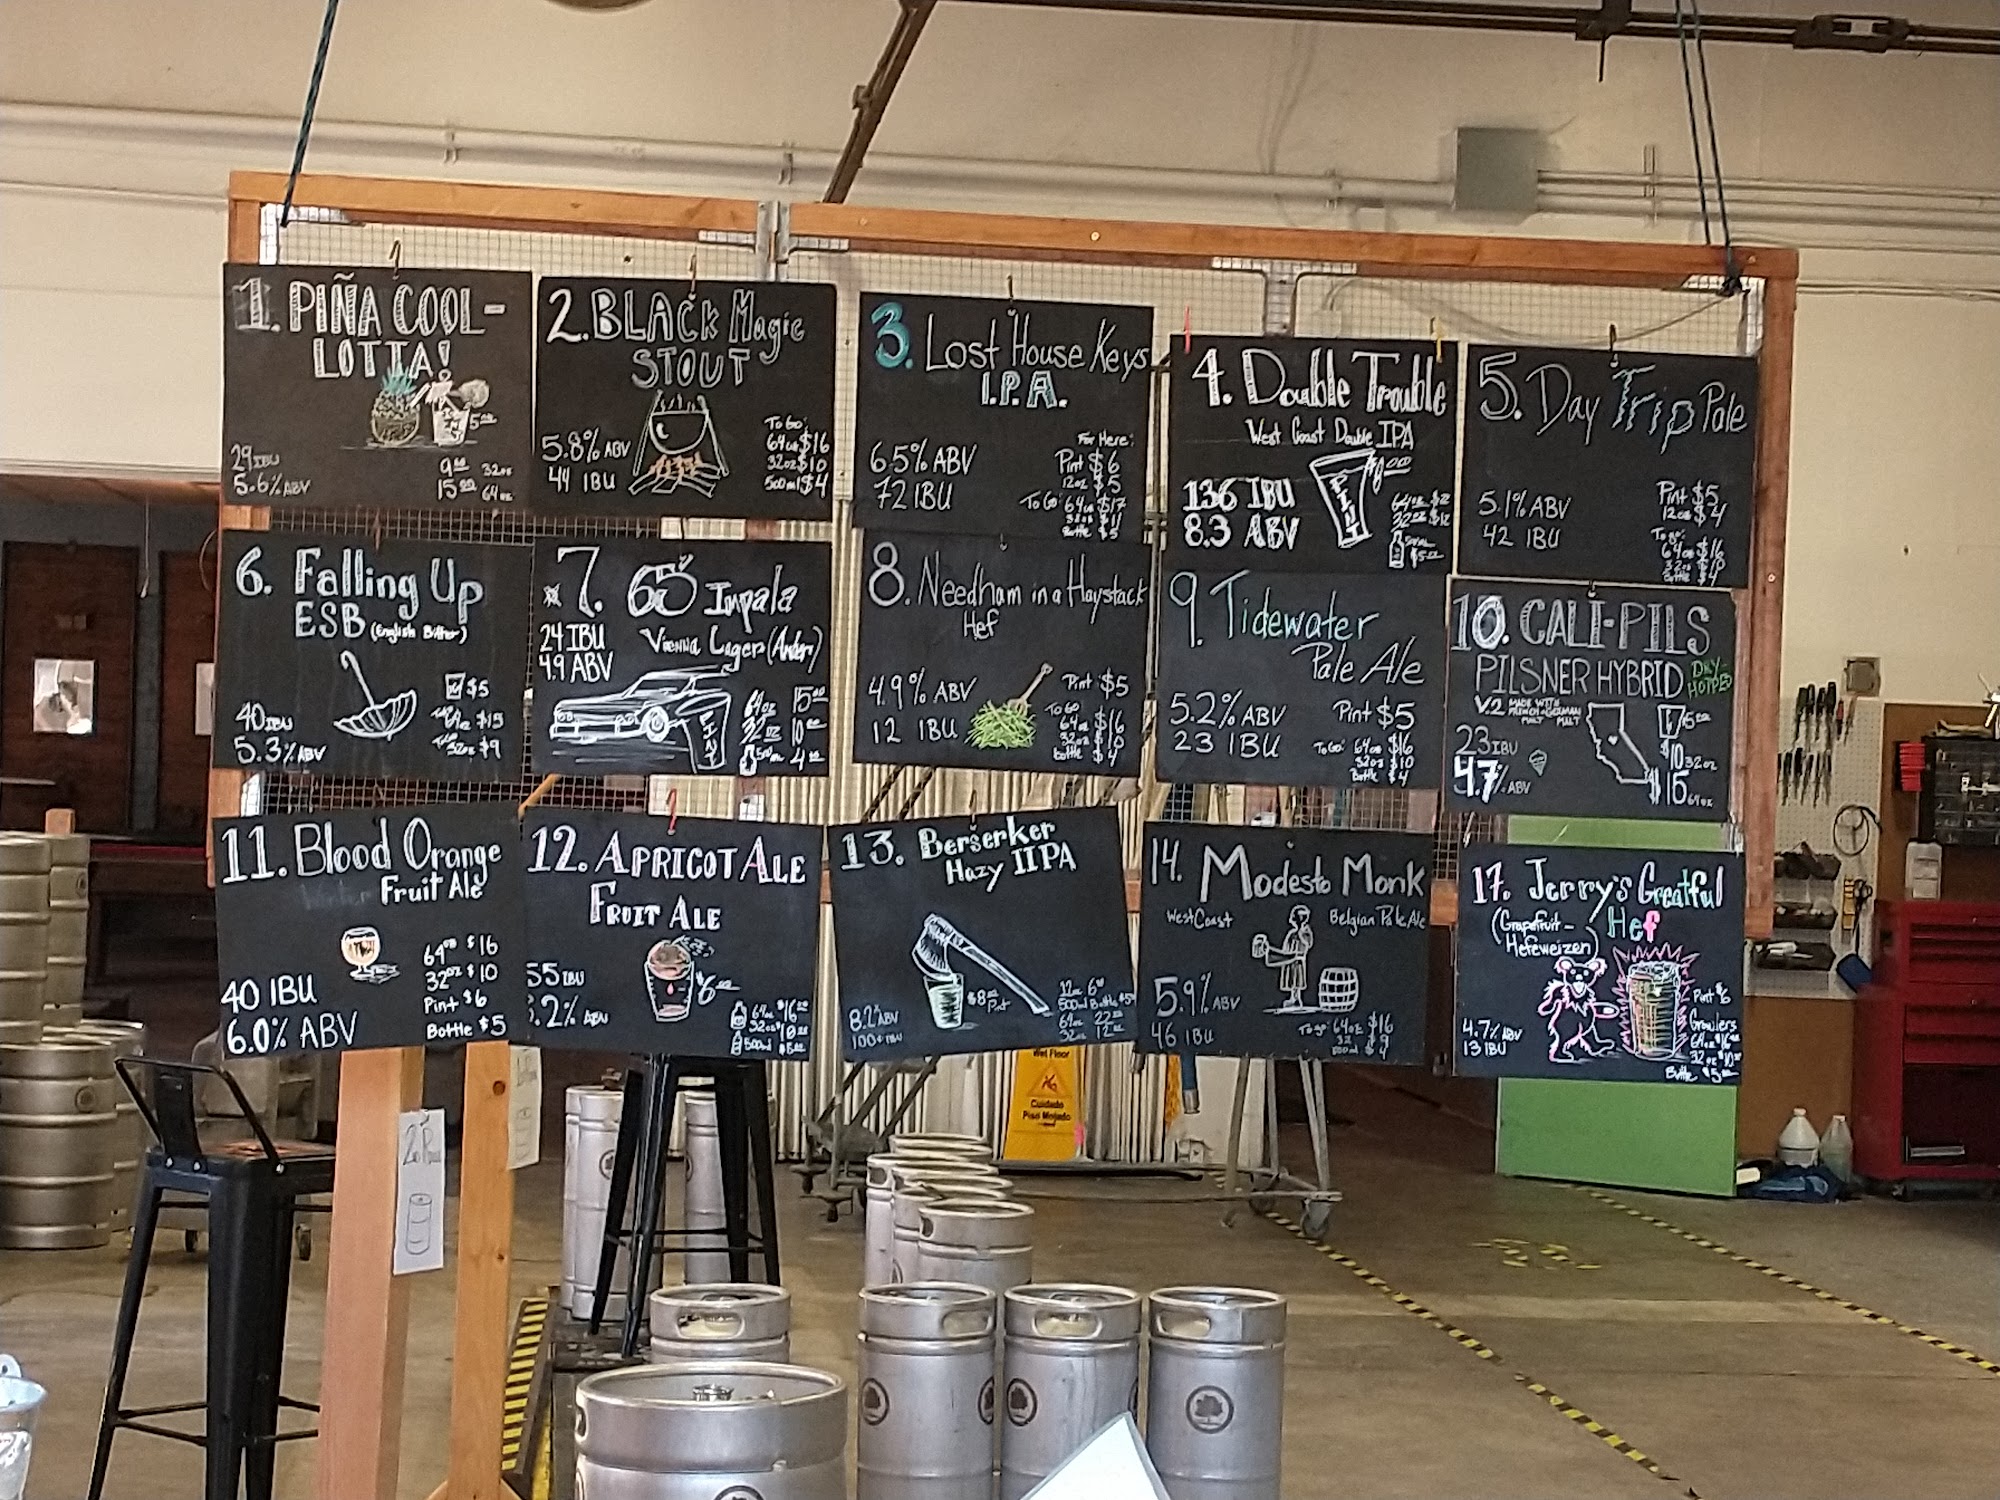 1. PIÑA COOL-
LOTTA!
5.00
29 IBU
5.6% ABV
9.00 32oz
15.00 64oz
2. BLACK Magic
STOUT
5.8% ABV
44 IBU
To Go:
64oz $16
32oz $10
500ml $4
3. Lost House Keys
I.P.A.
6.5% ABV
72 IBU
For Here:
Pint $6
12oz $5
To Go: 64oz $17
32oz $11
Bottle $5
4. Double Trouble
West Coast Double IPA
136 IBU
8.3 ABV
PINT
64oz
32oz $12
500ml
$5.00
5. Day Trip Pale
5.1% ABV
42 IBU
Pint $5
12oz $4
To go:
64oz $16
32oz $10
Bottle $4
6. Falling Up
ESB (English Bitter)
40 IBU
5.3% ABV
$5
64oz $15
32oz $9
7. 65 Impala
Vienna Lager (Amber)
24 IBU
4.9 ABV
PINT
64oz 15.00
32oz 10.00
500ml 4.00
8. Needham in a Haystack
Hef
4.9% ABV
12 IBU
Pint $5
To Go
64oz $16
32oz $10
Bottle $4
9. Tidewater
Pale Ale
5.2% ABV
23 IBU
Pint $5
To Go: 64oz $16
32oz $10
Bottle $4
10. CALI-PILS
PILSNER HYBRID DRY-
HOPPED
V.2 MADE WITH
FRENCH & GERMAN
MALT
23 IBU
4.7% ABV
$10 32oz
$15 64oz
11. Blood Orange
Winter Fruit Ale
40 IBU
6.0% ABV
64oz $16
32oz $10
Pint $6
Bottle $5
12. APRICOT ALE
FRUIT ALE
55 IBU
.2% ABV
$6
64oz $16
32oz $10
500ml $5
13. Berserker
Hazy IIPA
8.2% ABV
100+ IBU
$8.00 Pint
12oz 6.00
500ml Bottle $5
64oz 22.00
32oz 12.00
14. Modesto Monk
West Coast Belgian Pale Ale
5.9% ABV
46 IBU
To go 64oz $16
32 $9
500ml $4
17. Jerry's Greatful
(Grapefruit- Hef
Hefeweizen)
4.7% ABV
13 IBU
Pint $6
Growlers
64oz $16
32oz $10
Bottle $5.00
Wet Floor
Cuidado
Piso Mojado